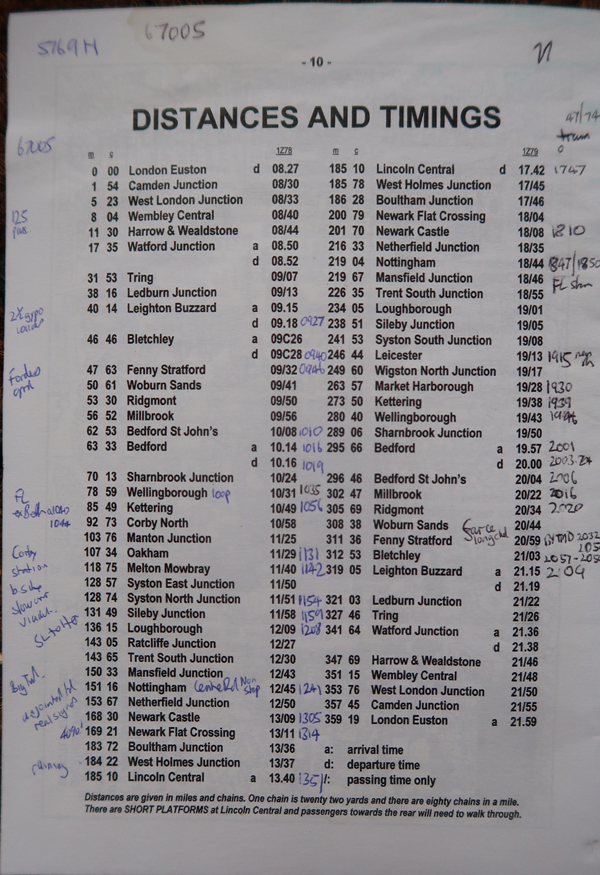 67005
5769M
- 10 -
DISTANCES AND TIMINGS
67005
m c 1Z78
0 00 London Euston d 08.27
1 54 Camden Junction 08/30
5 23 West London Junction 08/33
8 04 Wembley Central 08/40
11 30 Harrow & Wealdstone 08/44
17 35 Watford Junction a 08.50
d 08.52
31 53 Tring 09/07
38 16 Ledburn Junction 09/13
40 14 Leighton Buzzard a 09.15
d 09.18 0927
46 46 Bletchley a 09C26
d 09C28 0940
47 63 Fenny Stratford 09/32 0946
50 61 Woburn Sands 09/41
53 30 Ridgmont 09/50
56 52 Millbrook 09/56
62 53 Bedford St John's 10/08 1010
63 33 Bedford a 10.14 1016
d 10.16 1019
70 13 Sharnbrook Junction 10/24
78 59 Wellingborough loop 10/31 1035
85 49 Kettering 10/49 1056
92 73 Corby North 10/58
103 76 Manton Junction 11/25
107 34 Oakham 11/29 1131
118 75 Melton Mowbray 11/40 1142
128 57 Syston East Junction 11/50
128 74 Syston North Junction 11/51 1154
131 49 Sileby Junction 11/58 1159
136 15 Loughborough 12/09 1208
143 05 Ratcliffe Junction 12/27
143 65 Trent South Junction 12/30
150 33 Mansfield Junction 12/43
151 16 Nottingham Centre Rd Non stop 12/45 1241
153 67 Netherfield Junction 12/50
168 30 Newark Castle 13/09 1305
169 21 Newark Flat Crossing 13/11 1314
183 72 Boultham Junction 13/36
184 22 West Holmes Junction 13/37
185 10 Lincoln Central a 13.40 1351
m c 1Z79
185 10 Lincoln Central d 17.42 1747
185 78 West Holmes Junction 17/45
186 28 Boultham Junction 17/46
200 79 Newark Flat Crossing 18/04
201 70 Newark Castle 18/08 1810
216 33 Netherfield Junction 18/35
219 04 Nottingham 18/44 1847/1850
219 67 Mansfield Junction 18/46
226 35 Trent South Junction 18/55
234 05 Loughborough 19/01
238 51 Sileby Junction 19/05
241 53 Syston South Junction 19/08
246 44 Leicester 19/13 1915
249 60 Wigston North Junction 19/17
263 57 Market Harborough 19/28 1930
273 50 Kettering 19/38 1939
280 40 Wellingborough 19/43
289 06 Sharnbrook Junction 19/50
295 66 Bedford a 19.57 2001
d 20.00
296 46 Bedford St John's 20/04 2006
302 47 Millbrook 20/22 2016
305 69 Ridgmont 20/34 2020
308 38 Woburn Sands 20/44
311 36 Fenny Stratford 20/59
312 53 Bletchley 21/03
319 05 Leighton Buzzard a 21.15
d 21.19
321 03 Ledburn Junction 21/22
327 46 Tring 21/26
341 64 Watford Junction a 21.36
d 21.38
347 69 Harrow & Wealdstone 21/46
351 15 Wembley Central 21/48
353 76 West London Junction 21/50
357 45 Camden Junction 21/55
359 19 London Euston a 21.59
a: arrival time
d: departure time
/: passing time only
Distances are given in miles and chains. One chain is twenty two yards and there are eighty chains in a mile.
There are SHORT PLATFORMS at Lincoln Central and passengers towards the rear will need to walk through.